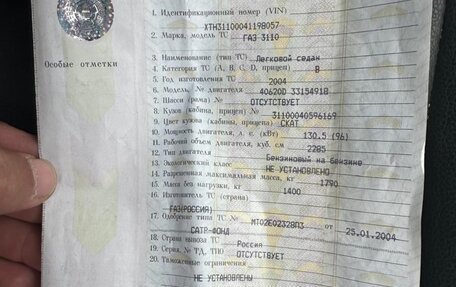 1. Идентификационный номер (VIN)
XTH31100041198057
2. Марка, модель ТС ГАЗ 3110
3. Наименование (тип ТС) Легковой седан
Особые отметки
4. Категория ТС (A, B, C, D, прицеп) B
5. Год изготовления ТС 2004
6. Модель, № двигателя 40620D 33154918
7. Шасси (рама) № ОТСУТСТВУЕТ
8. Кузов (кабина, прицеп) № 31100040596169
9. Цвет кузова (кабины, прицепа) СКАТ
10. Мощность двигателя, л. с. (кВт) 130.5 (96)
11. Рабочий объем двигателя, куб. см 2285
12. Тип двигателя Бензиновый на бензине
13. Экологический класс НЕ УСТАНОВЛЕНО
14. Разрешенная максимальная масса, кг 1790
15. Масса без нагрузки, кг 1400
16. Изготовитель ТС (страна)
ГАЗ(РОССИЯ)
17. Одобрение типа ТС № МТ02Е02328П3 от 25.01.2004
САТР-ФОНД
18. Страна вывоза ТС Россия
19. Серия, № ТД, ТПО ОТСУТСТВУЕТ
20. Таможенные ограничения
НЕ УСТАНОВЛЕНЫ